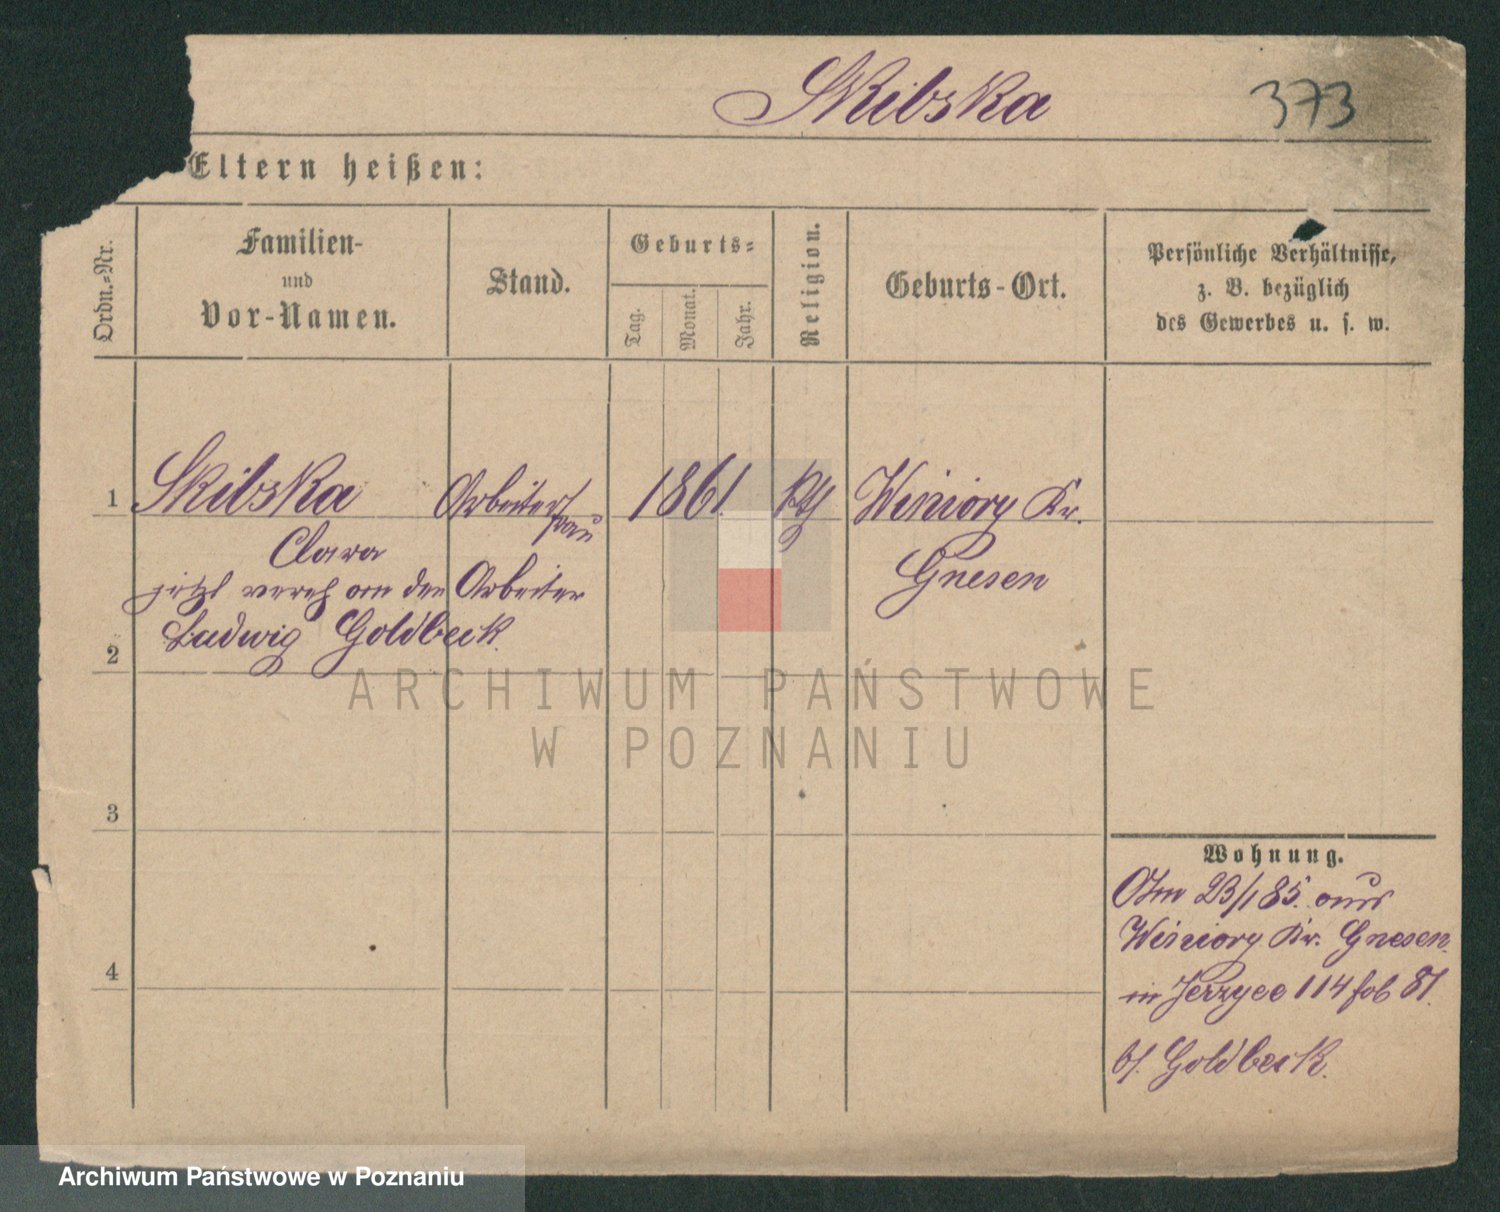 Skibska
373
Eltern heißen:
Ordn.-Nr.
Familien-
und
Vor-Namen.
Stand.
Geburts-
Tag.
Monat.
Jahr.
Religion.
Geburts-Ort.
Persönliche Verhältnisse,
z. B. bezüglich
des Gewerbes u. s. w.
1 Skibska Arbeiter 1861. kth Wisniory Kr.
frau
Clara Gnesen
jetzt vereh an den Arbeiter
Ludwig Goldbeck.
2
3
4
Wohnung.
23/1 85. aus
Wisniory Kr. Gnesen
in Jerzyce 114
bei Goldbeck.
ARCHIWUM PAŃSTWOWE
W POZNANIU
Archiwum Państwowe w Poznaniu